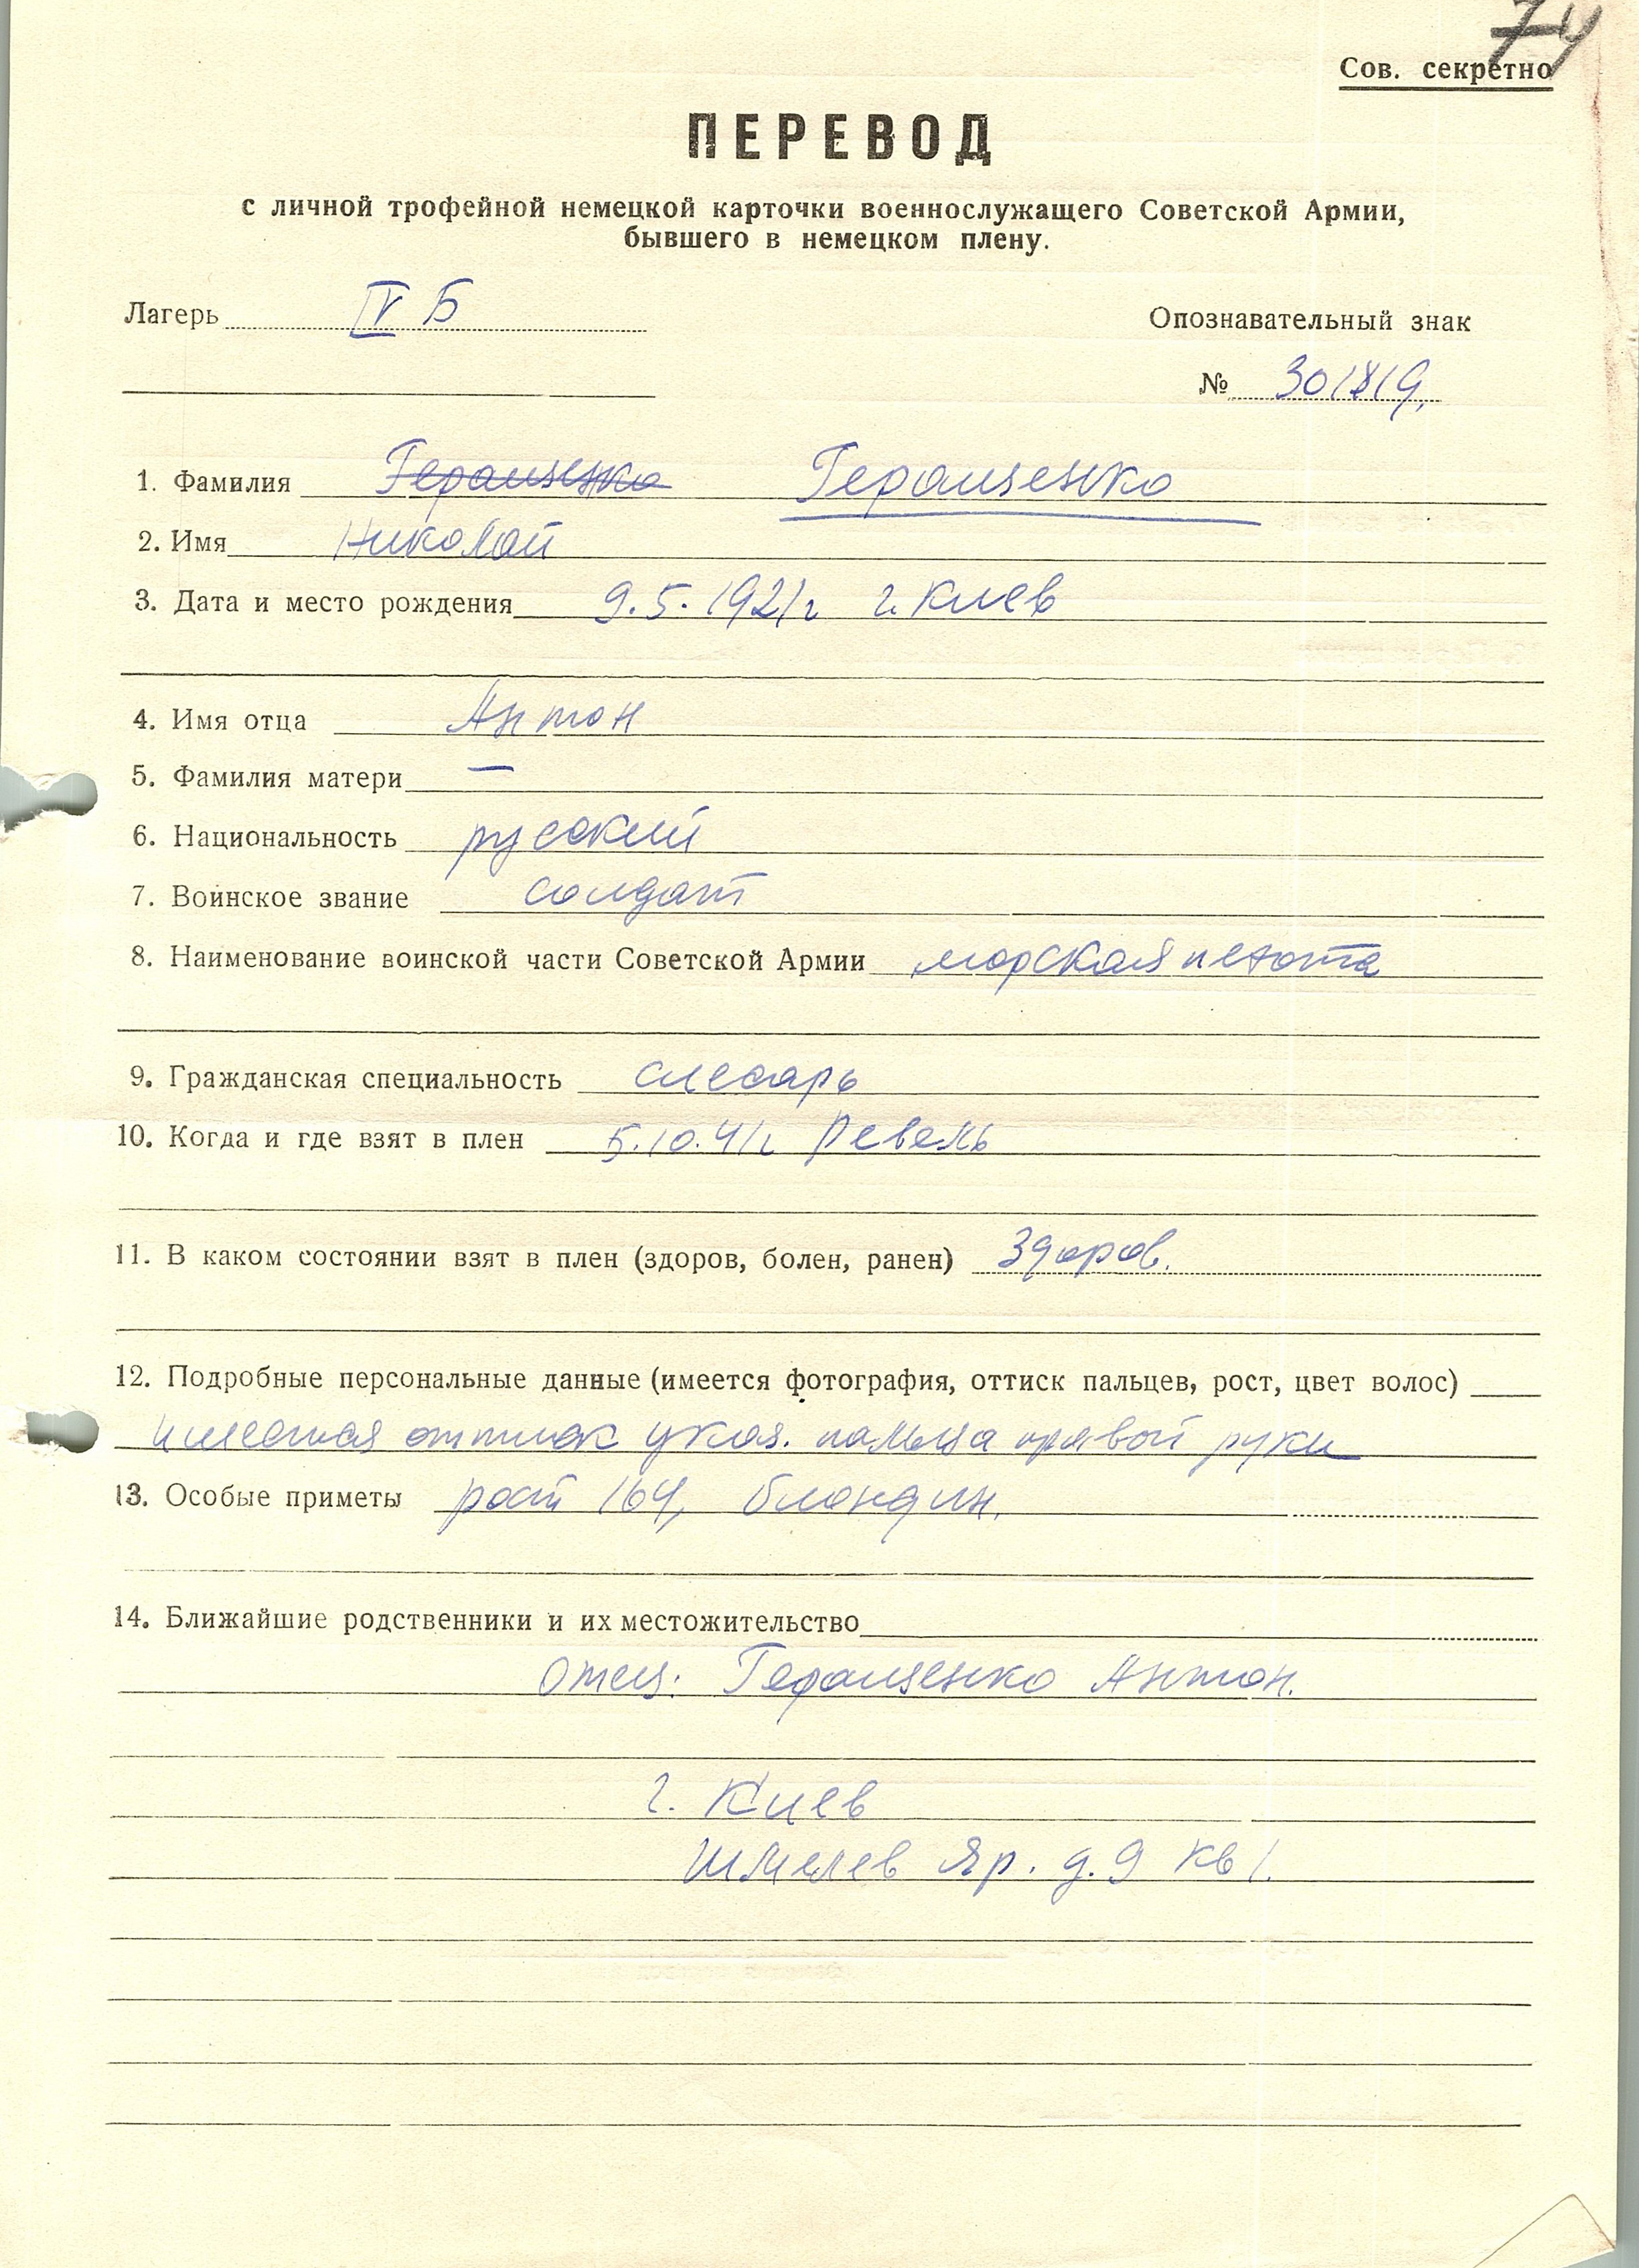 74
Сов. секретно
ПЕРЕВОД
с личной трофейной немецкой карточки военнослужащего Советской Армии,
бывшего в немецком плену.
Лагерь IV Б
Опознавательный знак
№ 301819.
1. Фамилия Геращенко Геращенко
2. Имя Николай
3. Дата и место рождения 9.5.1921г г. Киев
4. Имя отца Антон
5. Фамилия матери —
6. Национальность русский
7. Воинское звание солдат
8. Наименование воинской части Советской Армии морская пехота
9. Гражданская специальность слесарь
10. Когда и где взят в плен 5.10.41г Ревель
11. В каком состоянии взят в плен (здоров, болен, ранен) Здоров.
12. Подробные персональные данные (имеется фотография, оттиск пальцев, рост, цвет волос)
имеется оттиск указ. пальца правой руки
13. Особые приметы рост 164, блондин.
14. Ближайшие родственники и их местожительство
Отец: Геращенко Антон.
г. Киев
Шмелев Яр. д. 9 кв 1.